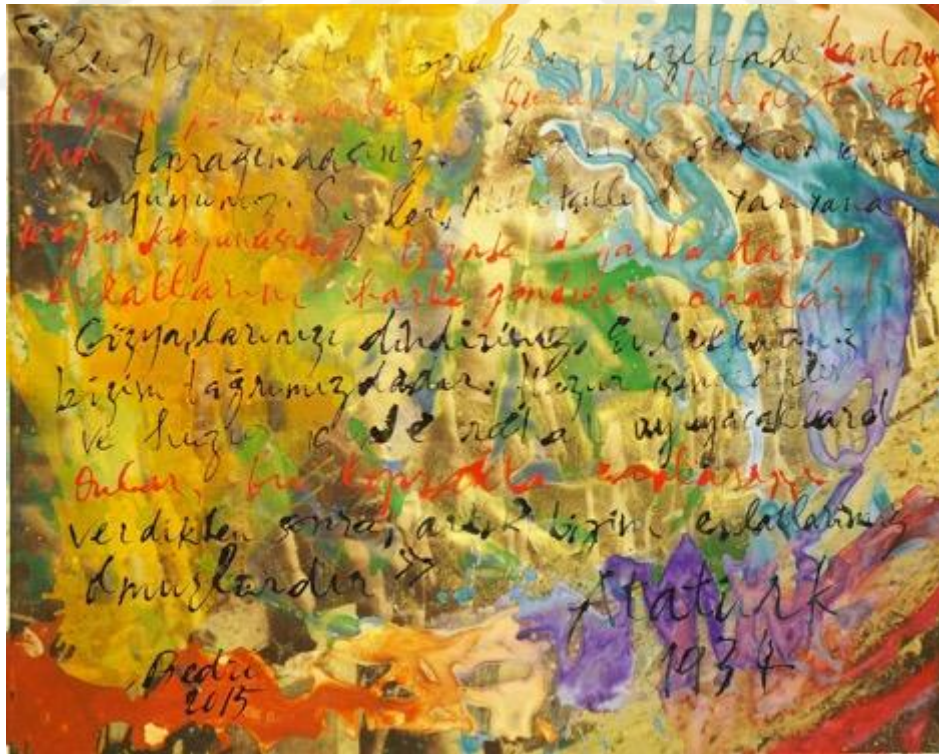 "Bu Memleketin toprakları üzerinde kanlarını
döken kahramanlar! Burada bir dost vata
nın toprağındasınız. Huzur ve sükun içinde
uyuyunuz. Sizler, Mehmetçikle yanyana
koyun koyunasınız. Uzak diyarlardan
evlatlarını harbe gönderen analar!
Gözyaşlarınızı dindiriniz. Evlatlarınız
bizim bağrımızdadır. Huzur içindedirler
ve huzur içinde rahat uyuyacaklardır
Onlar, bu toprakta canlarını
verdikten sonra, artık bizim evlatlarımız
olmuşlardır"
Atatürk
1934
Bedri
2015